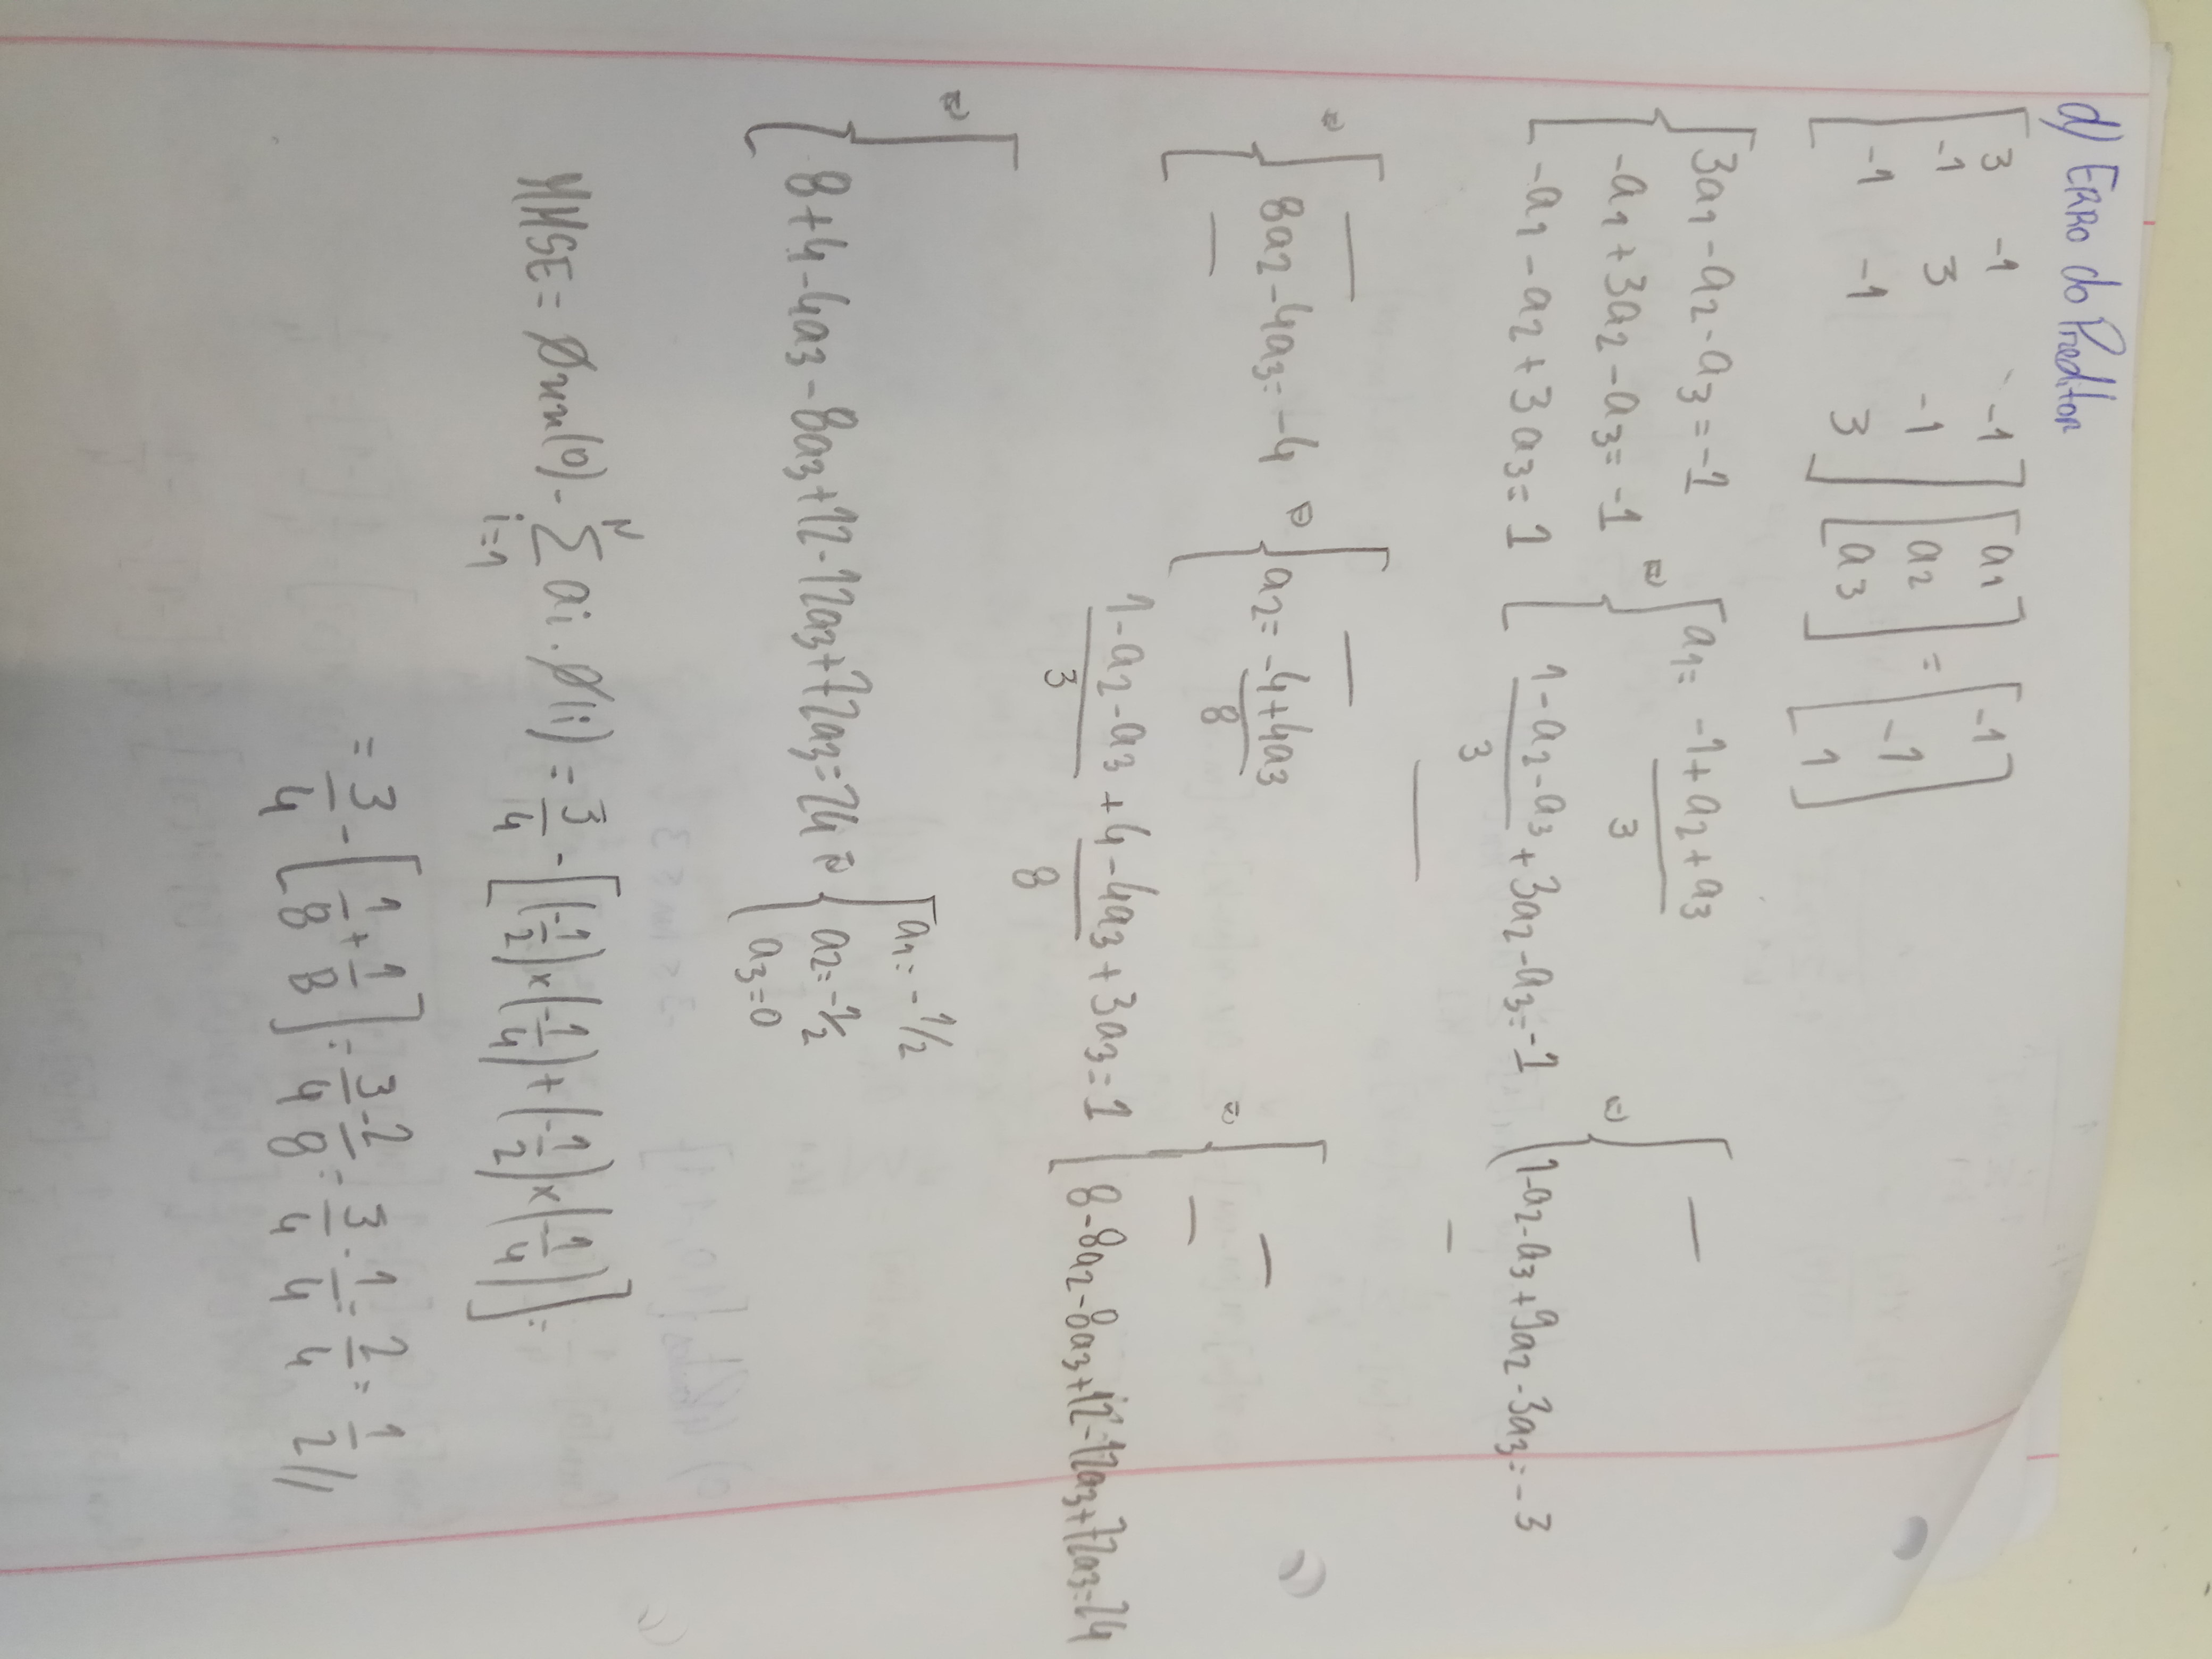 d) ERRO do Preditor
[3 -1 -1] [a1] = [-1]
[-1 3 -1] [a2] [-1]
[-1 -1 3] [a3] [1]
{3a1-a2-a3=-1 ⇔ {a1= (-1+a2+a3)/3 ⇔ { —
-a1+3a2-a3=-1
-a1-a2+3a3=1 (1-a2-a3)/3+3a2-a3=-1 1-a2-a3+9a2-3a3=-3
— —
⇔ { — ⇔ { — ⇔ { —
8a2-4a3=-4 a2= (-4+4a3)/8 —
—
(1-a2-a3)/3 + (4-4a3)/8 +3a3=1 8-8a2-8a3+12-12a3+72a3=24
⇔ { 8+4-4a3-8a3+12-12a3+72a3=24 ⇔ {a1=-1/2
a2=-1/2
a3=0
MMSE= Øxx(0)- N Σ i=1 ai.Ø(i) = 3/4 - [(-1/2)×(-1/4)+(-1/2)×(-1/4)]=
= 3/4 - [1/8+1/8] = 3/4-2/8 = 3/4-1/4 = 2/4 = 1/2//